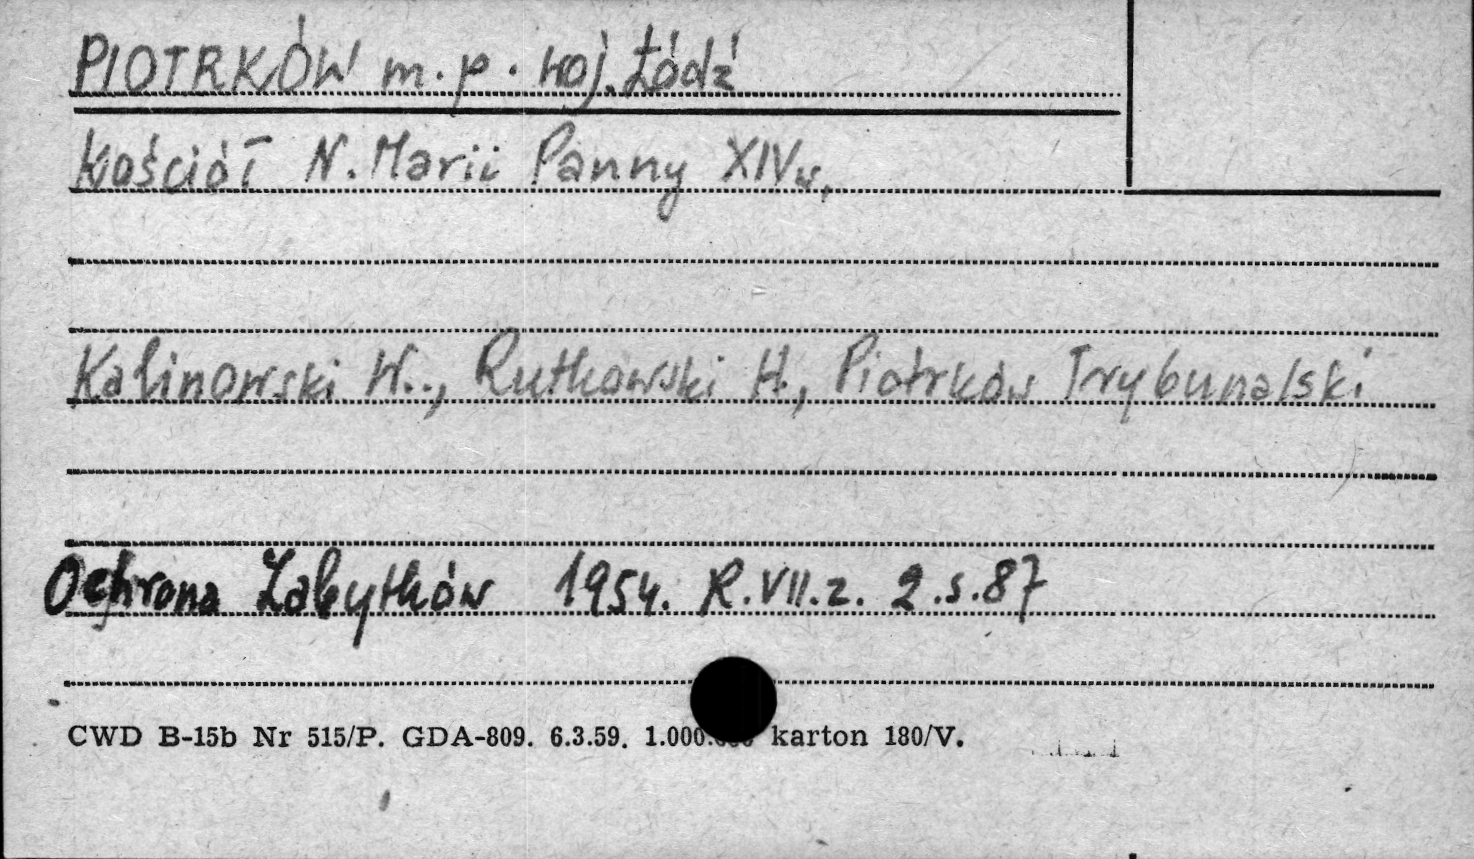 PIOTRKÓW m.p. woj. Łódź
kościół N. Marii Panny XIVw.
Kalinowski W.., Rutkowski H., Piotrków Trybunalski
Ochrona Zabytków 1954. R.VII.z. 2.s.87
CWD B-15b Nr 515/P. GDA-809. 6.3.59. 1.000.000 karton 180/V.